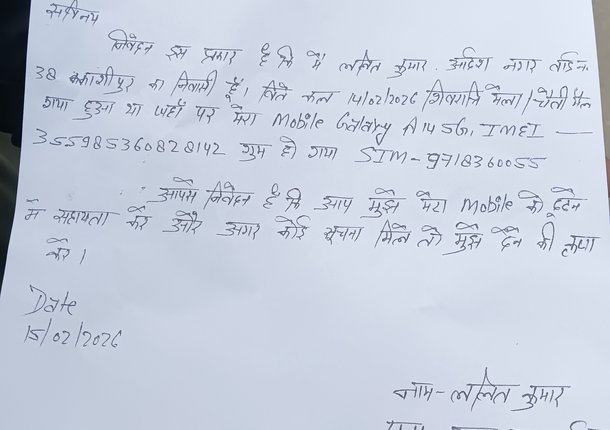 सविनय
निवेदन इस प्रकार है कि मैं ललित कुमार. आदर्श नगर वार्ड नं.
38 काशीपुर का निवासी हूँ। बिते कल 14/02/2026 शिवरात्रि मेला/चैती मेला
गया हुआ था वहाँ पर मेरा Mobile Galaxy A14 5G, IMEI —
355985360828142 गुम हो गया SIM-9718360055
आपसे निवेदन है कि आप मुझे मेरा Mobile को ढूँढने
में सहायता करे और अगर कोई सूचना मिले तो मुझे देने की कृपा
करे।
Date
15/02/2026
नाम-ललित कुमार